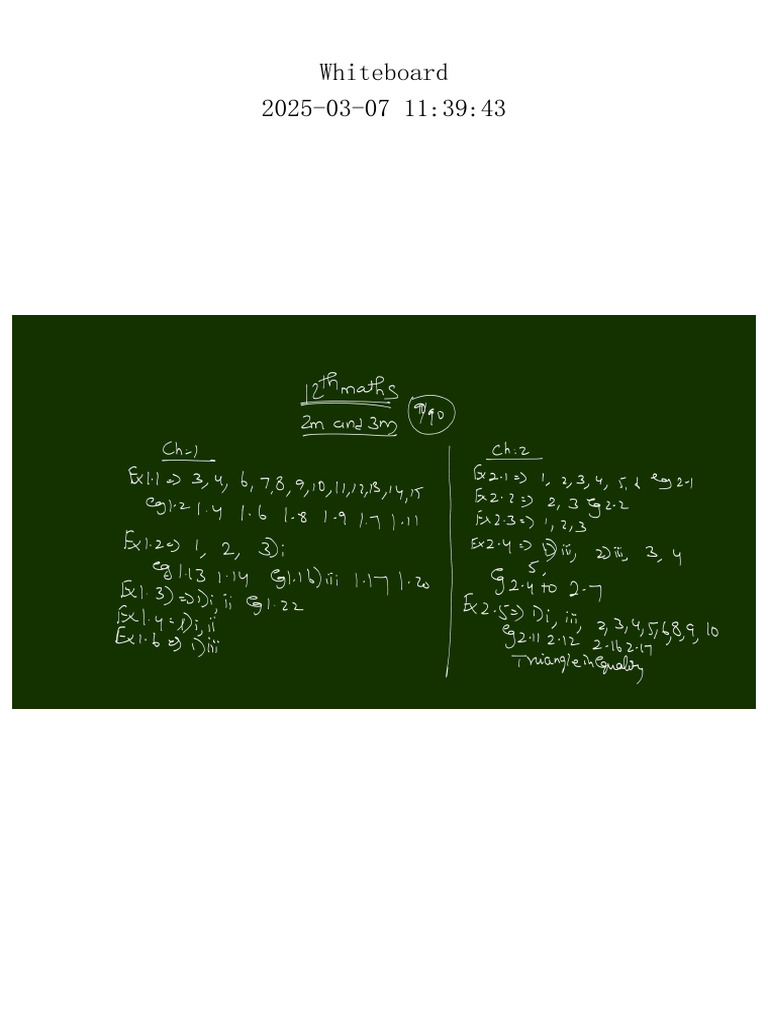 Whiteboard
2025-03-07 11:39:43
12th maths
2m and 3m
/90
Ch-1
Ex1.1 => 3, 4, 6, 7, 8, 9, 10, 11, 12, 13, 14, 15
eg 1.2 1.4 1.6 1.8 1.9 1.7 1.11
Ex1.2 => 1, 2, 3) i
eg 1.13 1.14 eg 1.16) iii 1.17 1.20
Ex1.3) => 1) i, ii eg 1.22
Ex1.4 => 1) i, ii
Ex1.6 => 1) iii
Ch:2
Ex2.1 => 1, 2, 3, 4, 5, 6 eg 2.1
Ex2.2 => 2, 3 eg 2.2
Ex2.3 => 1, 2, 3
Ex2.4 => 1) iii, 2) iii, 3, 4
5,
eg 2.4 to 2.7
Ex2.5 => 1) i, iii, 2, 3, 4, 5, 6, 8, 9, 10
eg 2.11 2.12 2.16 2.17
Triangle inequality